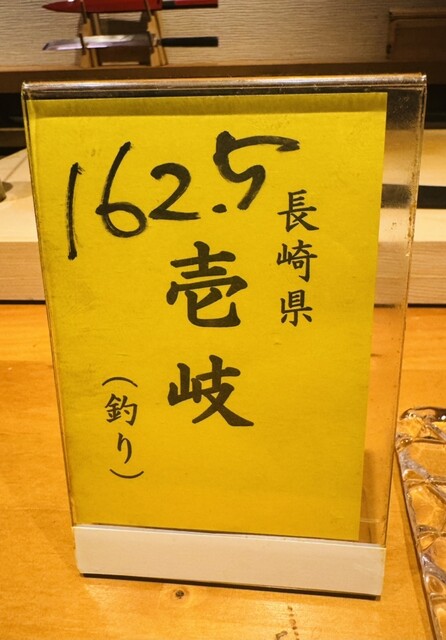 162.5
長崎県
壱岐
（釣り）